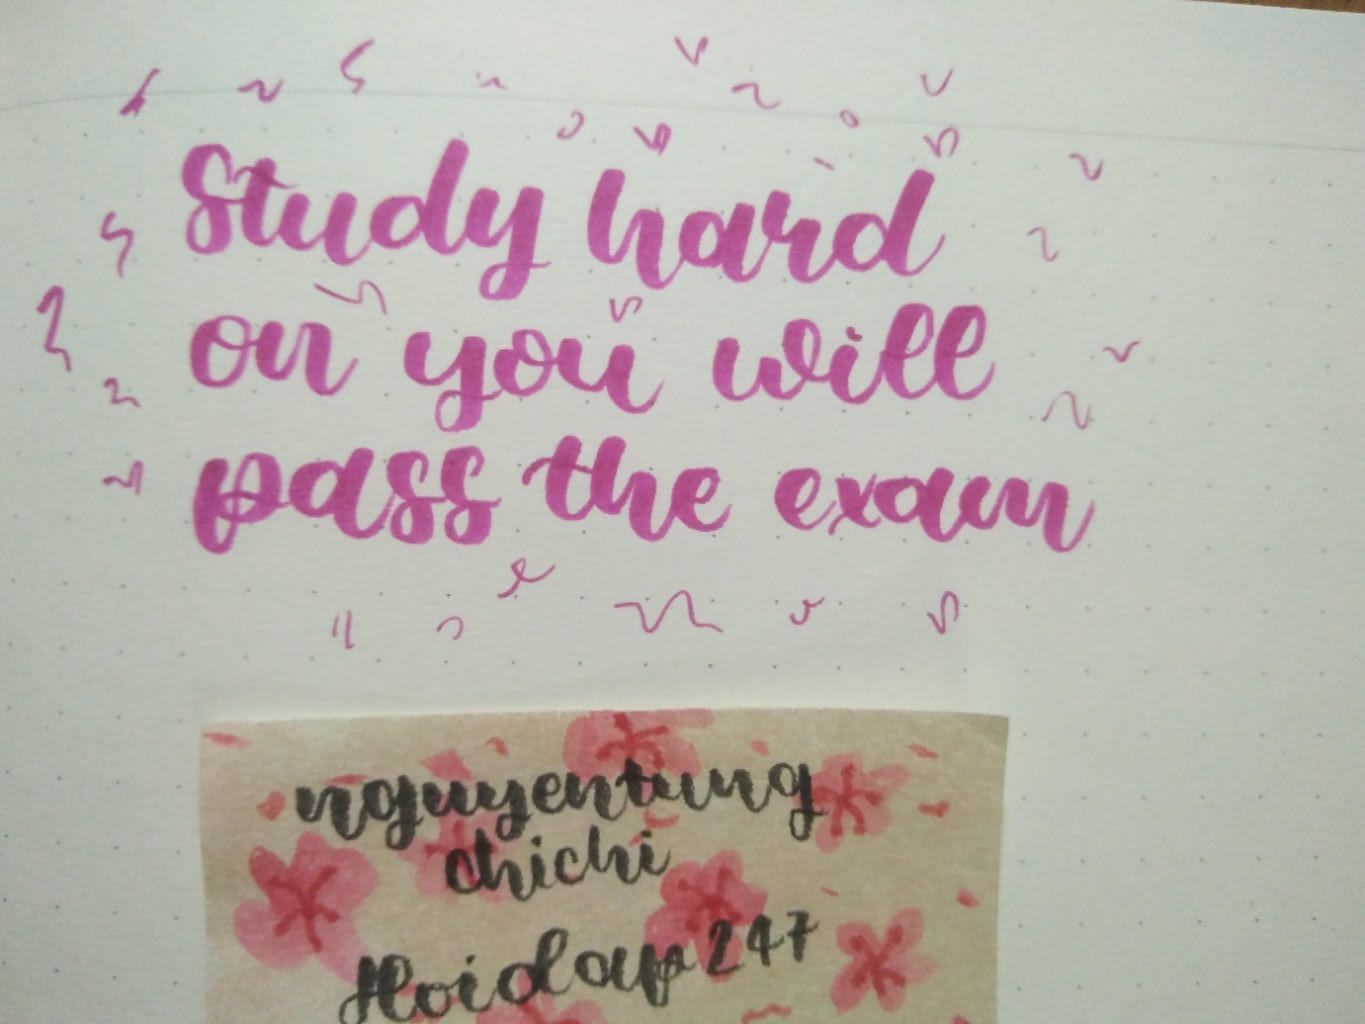 Study hard
on you will
pass the exam
nguyentung
chichi
Hoidap 247